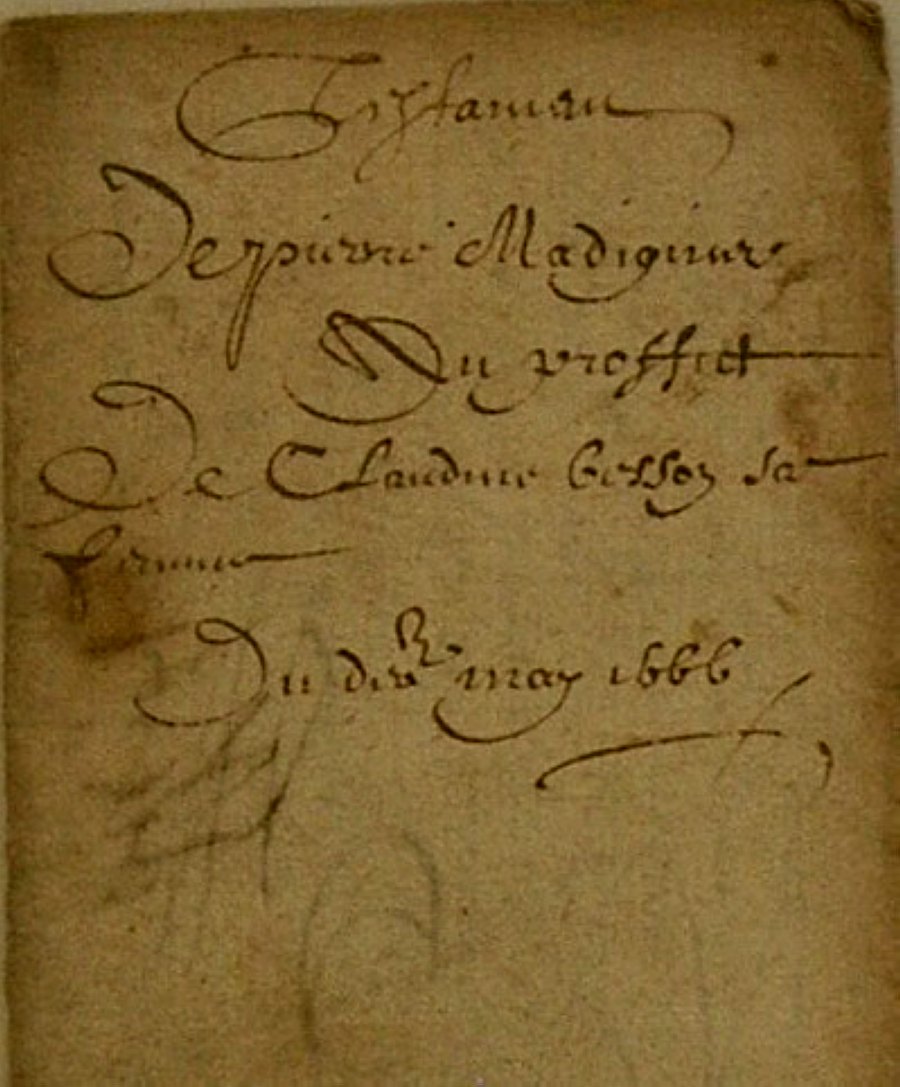 Testaman
De pierre Madignier
Du proffict
De Claudine besson sa
femme
Du may 1666